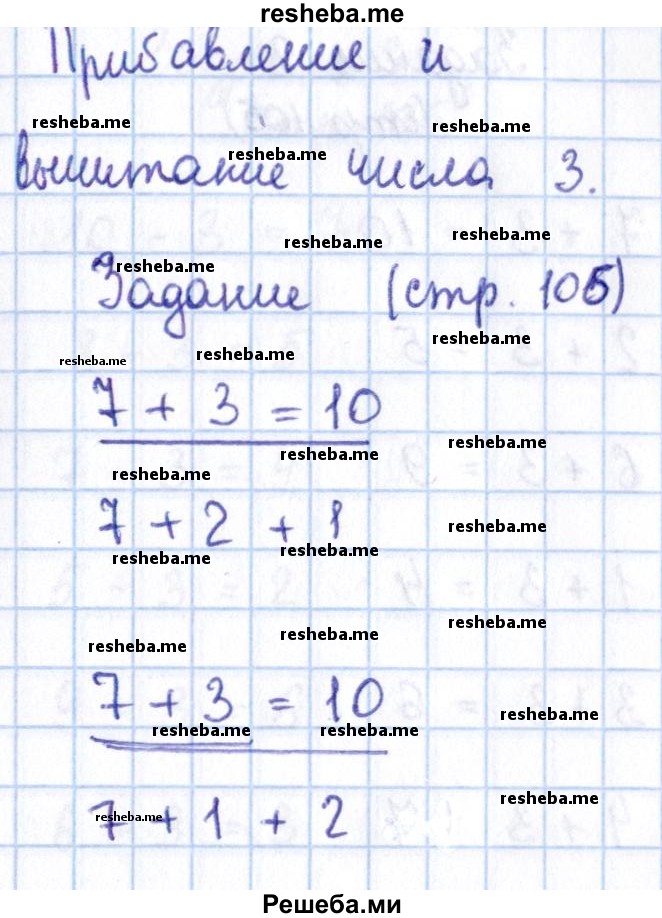 resheba.me
Прибавление и
resheba.me
resheba.me
resheba.me
вычитание числа 3.
resheba.me
resheba.me
resheba.me
Задание (стр. 105)
resheba.me
resheba.me
resheba.me
7 + 3 = 10
resheba.me
resheba.me
resheba.me
7 + 2 + 1
resheba.me
resheba.me
resheba.me
resheba.me
resheba.me
resheba.me
7 + 3 = 10
resheba.me
resheba.me
resheba.me
resheba.me
7 + 1 + 2
resheba.me
Решеба.ми